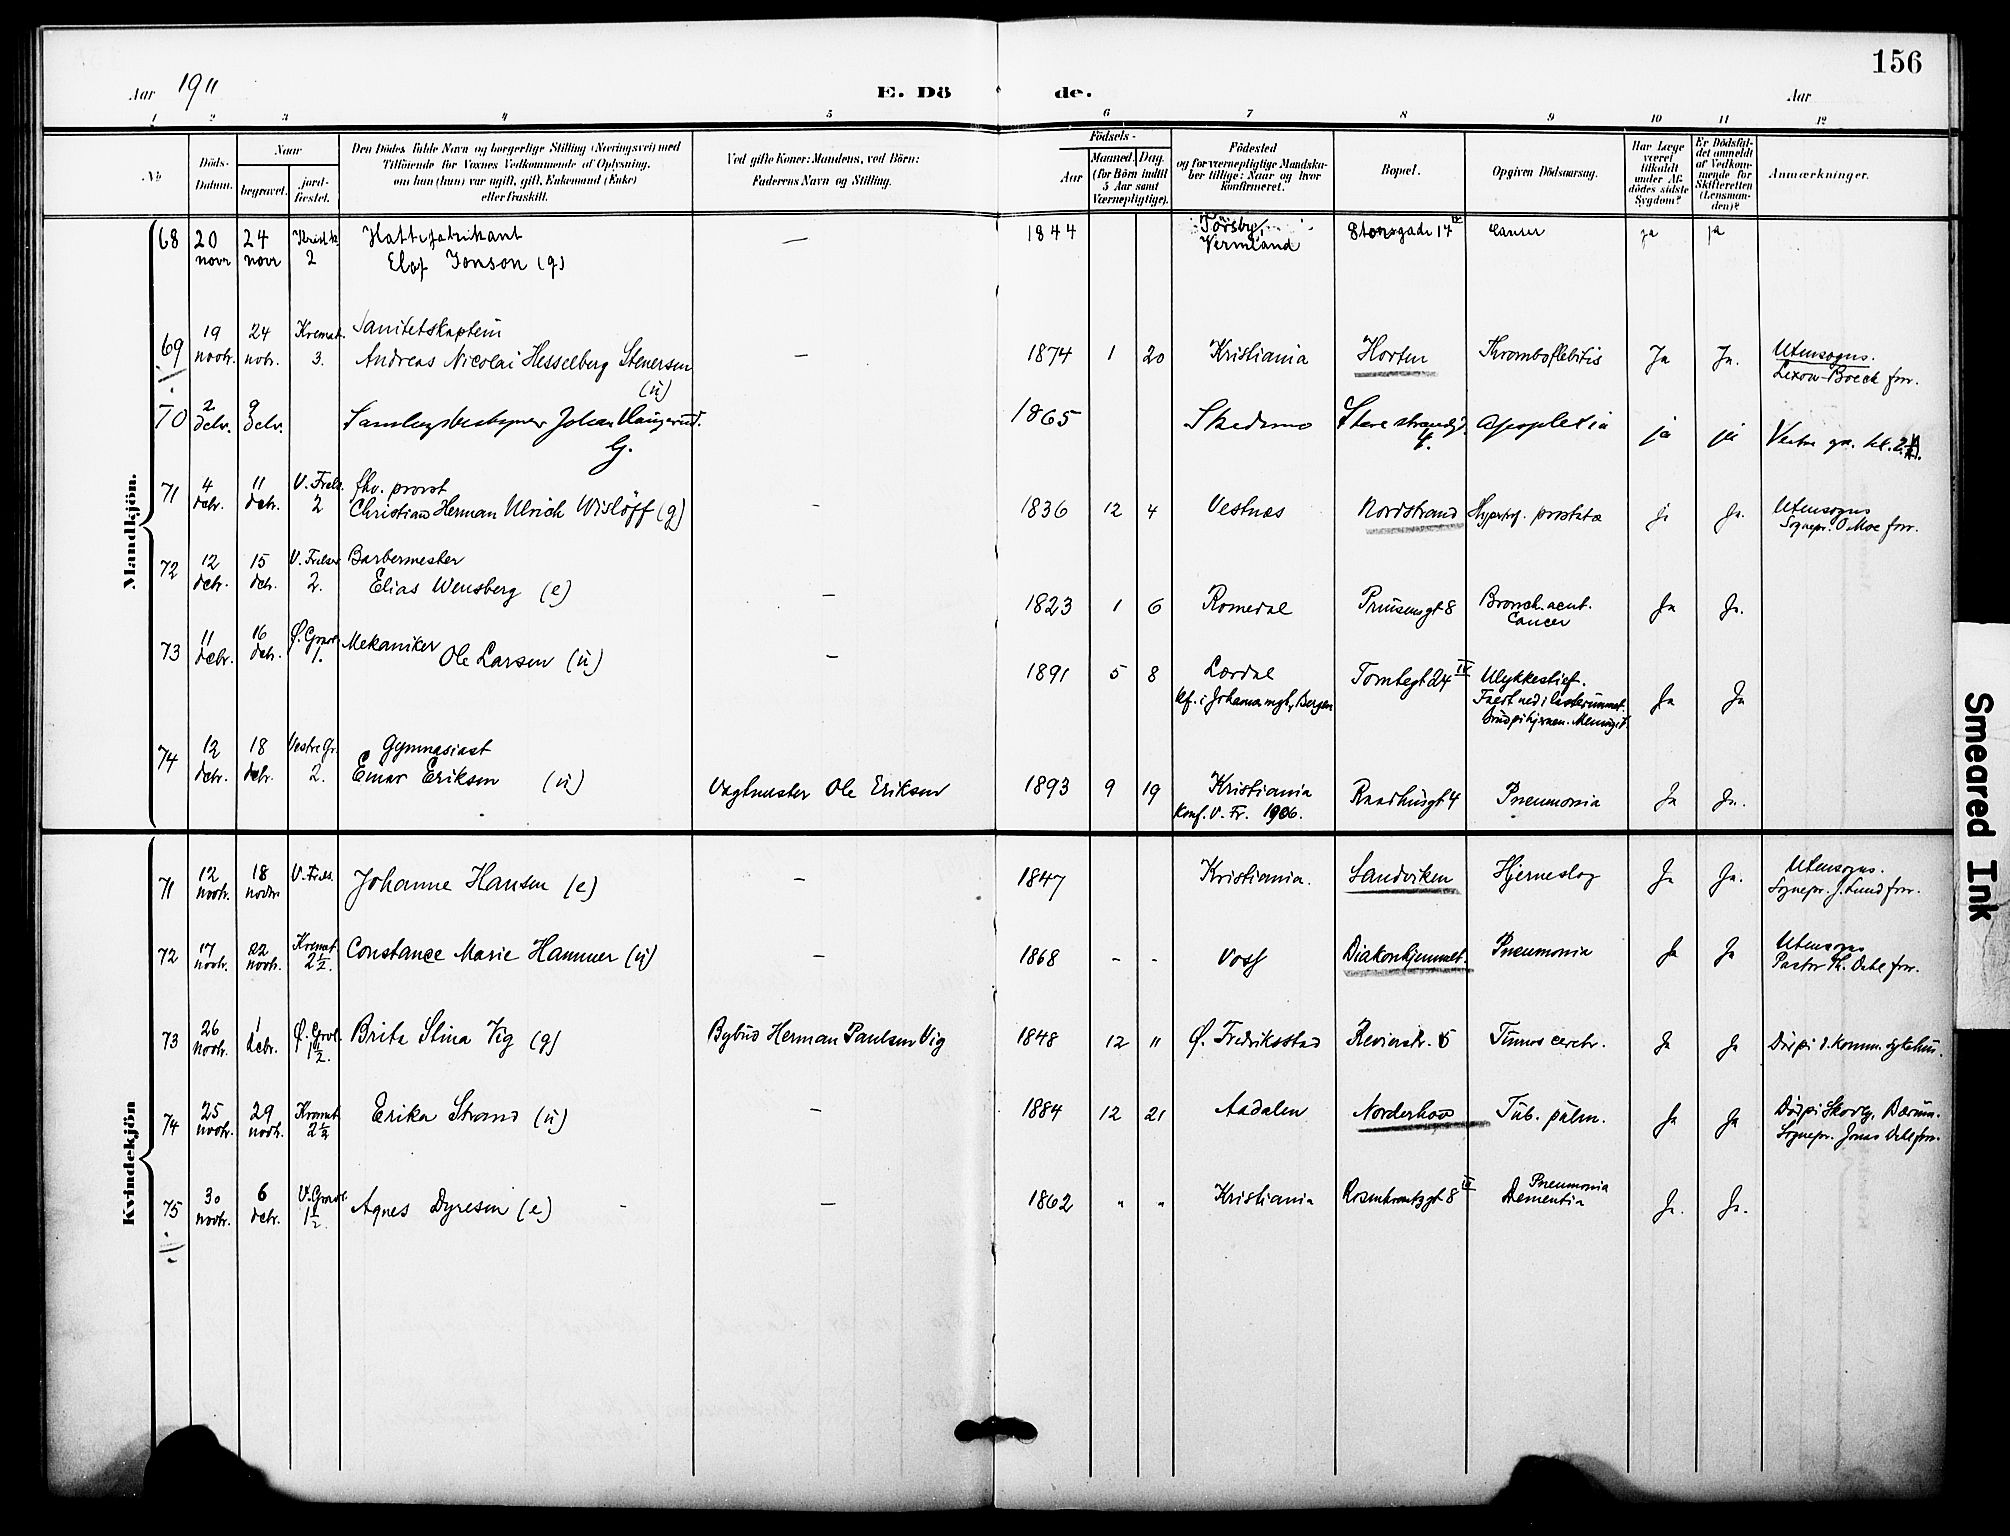 156
Aar 1911
E. Dö de.
Aar
1 2 3 4 5 6 7 8 9 10 11 12
No
Döds-Datum.
Naar
begravet.
jord-fæstet.
Den Dödes fulde Navn og borgerlige Stilling (Næringsvei) med
Tilföiende for Voxnes Vedkommende af Oplysning,
om han (hun) var ugift, gift, Enkemand (Enke)
eller fraskilt.
Ved gifte Koner: Mandens, ved Börn:
Faderens Navn og Stilling.
Födsels-
Aar
Maaned. Dag.
(for Börn indtil
5 Aar samt
Værnepligtige).
Födested
og for værnepligtige Mandska-
ber tillige: Naar og hvor
konfirmeret.
Bopæl.
Opgiven Dödsaarsag.
Har Læge
været
tilkaldt
under Af-
dödes sidste
Sygdom?
Er Dödsfal-
det anmeldt
af Vedkom-
mende for
Skifteretten
(Lensman-
den)?
Anmærkninger.
Mandkjön.
68 20 novr 24 novr 2 Hattefabrikant
Elof Jonson (g) — 1844 Törsby, Vermland Storgade 14 IV Cancer ja ja
69 19 novbr. 24 nobr. Kremat. 3. Sanitetskaptein
Andreas Nicolai Hesselberg Stenersen (ü) — 1874 1 20 Kristiania Horten Thromboflebitis Ja Ja. Utensogns.
Lexow-Boeck forr.
70 2 debr. 9 debr. Johan Haugerud.
G. 1865 Skedsmo Store strandg. 4. Apoplexia ja ja
71 4 debr. 11 debr. V. Frels. 2 fhv. provst
Christian Herman Ulrich Wislöff (g) — 1836 12 4 Vestnes Nordstrand Hypertrof. prostata ja Ja. Utensogns
Sognepr. O. Moe forr.
72 12 debr. 15 debr. V. Frelser 2. Barbermester
Elias Wensberg (e) — 1823 1 6 Romedal Prinsensgt 8 Bronch. acut.
Cancer Ja Ja.
73 11 debr. 16 debr. Ø. Gravl. 1. Mekaniker
Ole Larsen (ü) — 1891 5 8 Lærdal
kf. i Johannesmgt, Bergen Tomtegt 24 IV Ulykkestilf.
Faldt ned i lasterummet. Ja Ja
74 12 debr. 18 debr. Vestre Gr. 2. Gymnasiast
Einar Eriksen (ü) Vagtmester Ole Eriksen 1893 9 19 Kristiania
Konf. V. Fr. 1906. Raadhusgt 4 Pneumonia Ja Ja.
Kvindekjön
71 12 novbr. 18 novbr V. Frels. Johanne Hansen (e) — 1847 Kristiania. Sandviken Hjerneslag Ja Ja. Utensogns.
Sognepr. J. Lund forr.
72 17 novbr. 22 novbr. Kremat. 2½. Constance Marie Hammer (ü) — 1868 - - Voss Diakonhjemmet. Pneumonia Ja Ja Utensogns
Pastor Th. Dahl forr.
73 26 novbr. 1 debr. Ø. Gravl. 1½. Brita Stina Vig (g) Bybud Herman Paulsen Vig 1848 12 11 Ø. Fredriksstad Revierstr. 5 Tumor cerebr. Ja Ja Död på d. komm. sykehus.
74 25 novbr. 29 novbr. Kremat. 2½ Erika Strand (ü) — 1884 12 21 Aadalen Norderhov Tub. pulm. Ja Ja Död på Skovly, Bærum.
Sognepr. Jonas Dahl forr.
75 30 novbr. 6 debr. V. Gravl. 1½. Agnes Dyresen (e) — 1862 " " Kristiania Rosenkrantzgt 8 IV Pneumonia
Dementia Ja. Ja.
Smeared Ink